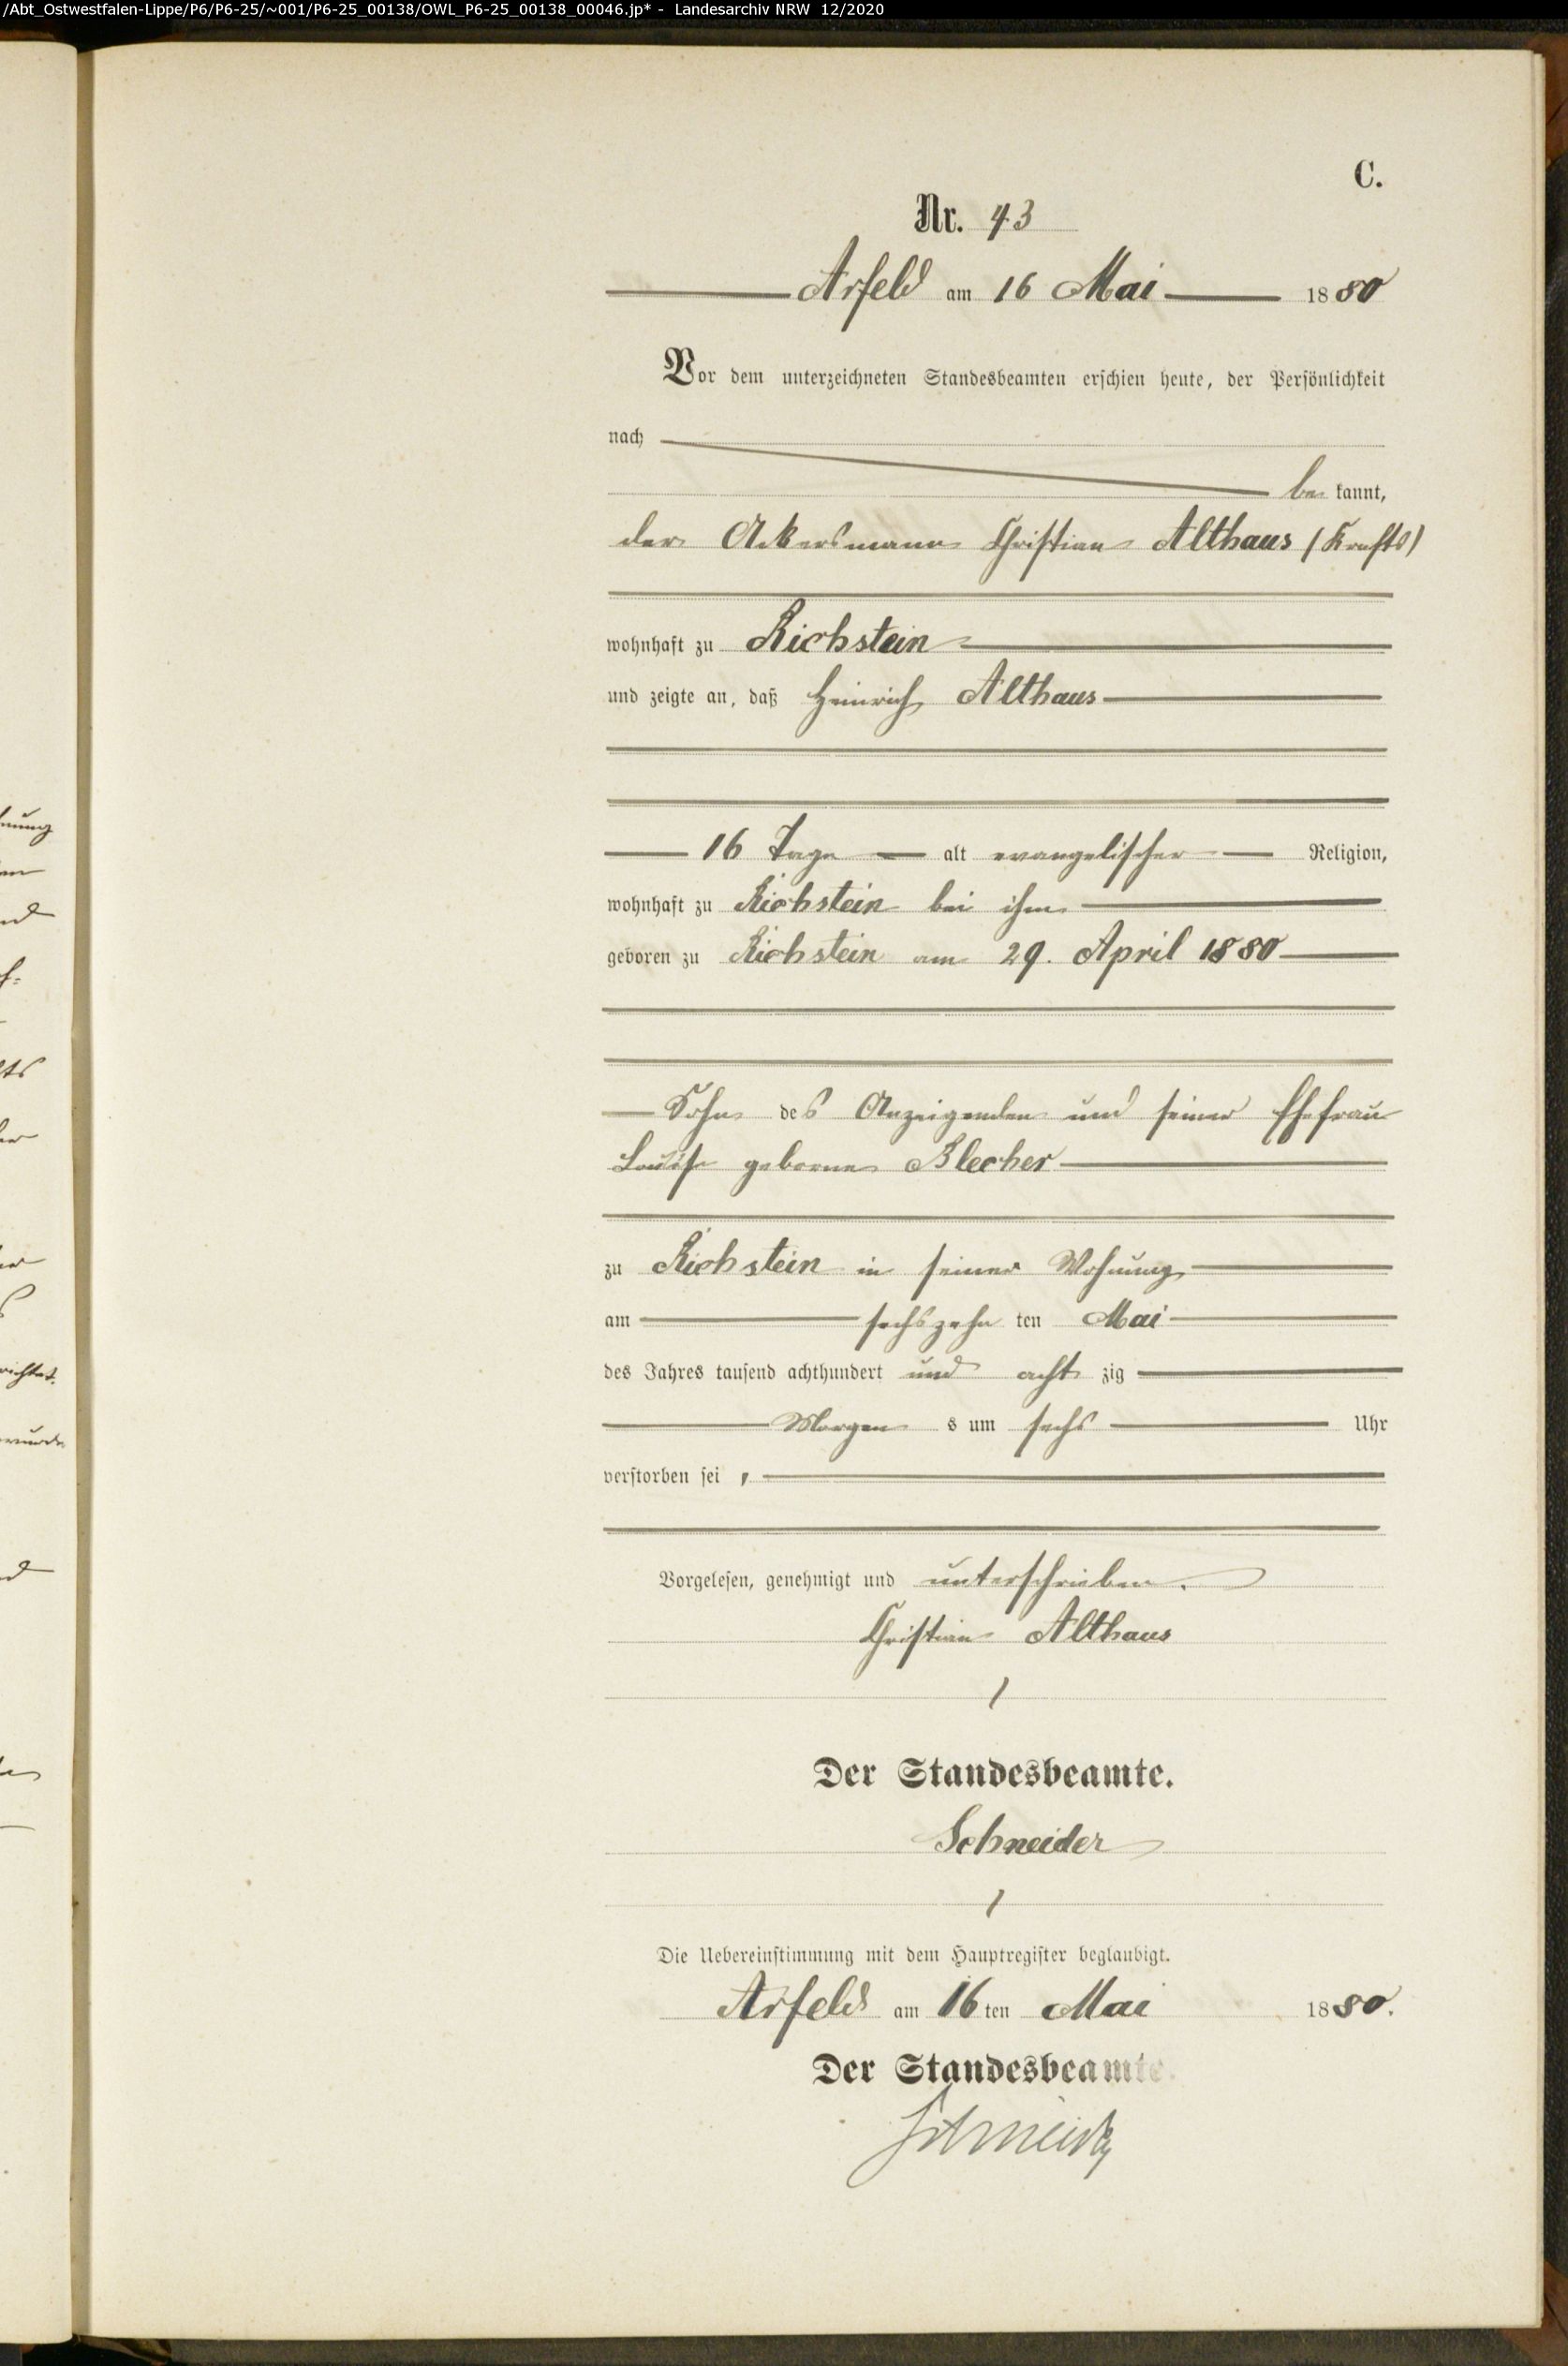 /Abt_Ostwestfalen-Lippe/P6/P6-25/~001/P6-25_00138/OWL_P6-25_00138_00046.jp* - Landesarchiv NRW 12/2020
C.
Nr. 43
Arfeld am 16 Mai 1880
Vor dem unterzeichneten Standesbeamten erschien heute, der Persönlichkeit
nach
be kannt,
der Ackersmann Christian Althaus (Krafts)
wohnhaft zu Richstein
und zeigte an, daß Heinrich Althaus
16 Tage alt evangelischer Religion,
wohnhaft zu Richstein bei ihm
geboren zu Richstein am 29. April 1880
Sohn des Anzeigenden und seiner Ehefrau
Louise geborne Blecher
zu Richstein in seiner Wohnung
am sechszehn ten Mai
des Jahres tausend achthundert und acht zig
Morgen s um sechs Uhr
verstorben sei,
Vorgelesen, genehmigt und unterschrieben.
Christian Althaus
Der Standesbeamte.
Schneider
Die Uebereinstimmung mit dem Hauptregister beglaubigt.
Arfeld am 16ten Mai 1880.
Der Standesbeamte.
Schneider